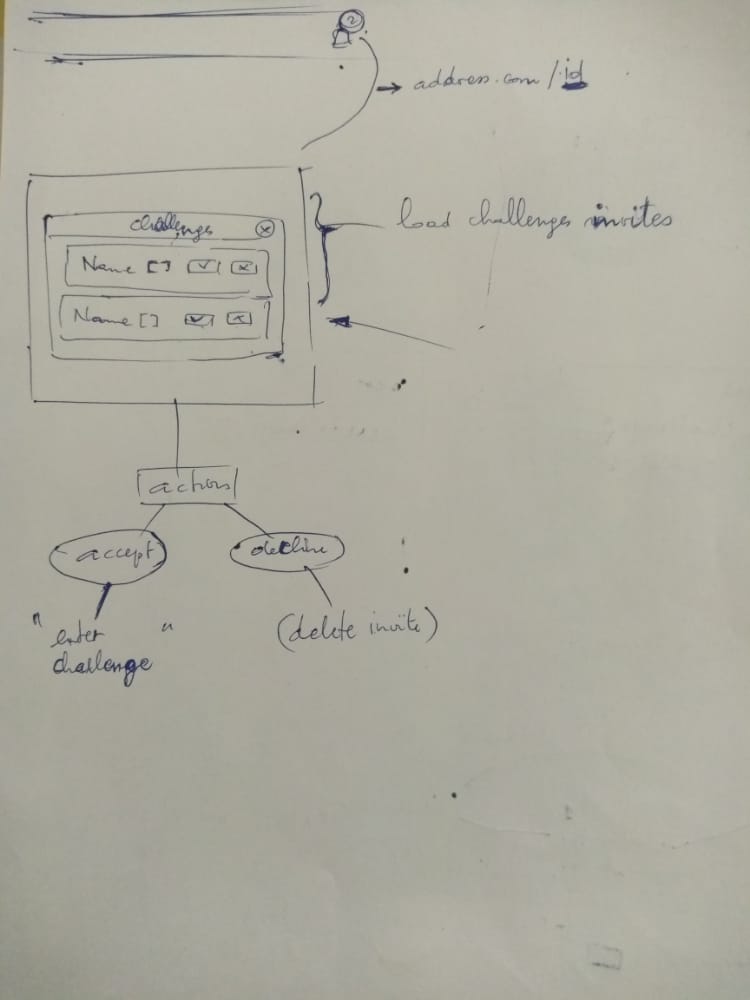 2
address.com/id
challenges
load challenges invites
Name [] ✓ x
Name [] ✓ x
actions
accept
decline
"enter challenge"
(delete invite)